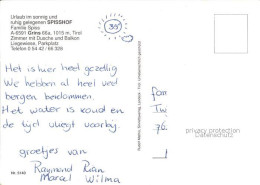 Urlaub im sonnig und
ruhig gelegenen SPISSHOF
Familie Spiss
A-6591 Grins 66a, 1015 m, Tirol
Zimmer mit Dusche und Balkon
Liegewiese, Parkplatz
Telefon 0 54 42 / 66 328
35°
Het is hier heel gezellig
We hebben al heel veel
bergen beklommen.
Het water is koud en
de tijd vliegt voorby.
groetjes van
Raymond Rian
Marcel Wilma
fam
76.
privacy protection
Datenschutz